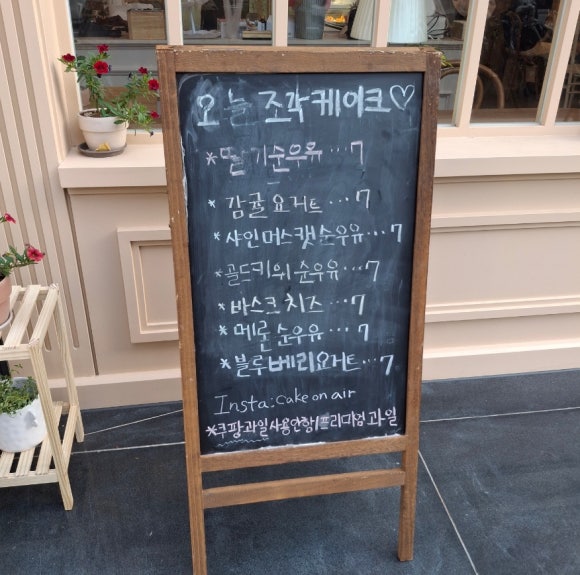 오늘 조각케이크♡
*딸기순우유...7
*감귤요거트...7
*샤인머스캣순우유...7
*골드키위순우유...7
*바스크치즈...7
*메론순우유...7
*블루베리요거트...7
Insta:cake on air
*쿠팡과일사용안함/프리미엄과일